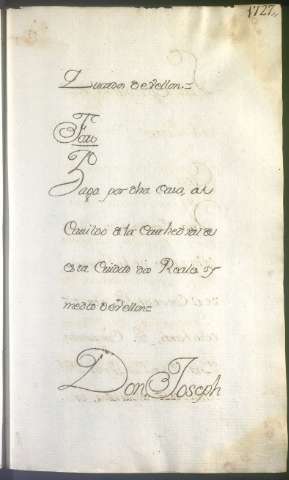 1727
Quartos de Vellon=
Paga por dha Casa, al
Cavildo de la Cathedral de
esta Ciudad dos Reales y
medio de Vellon=
Don, Joseph